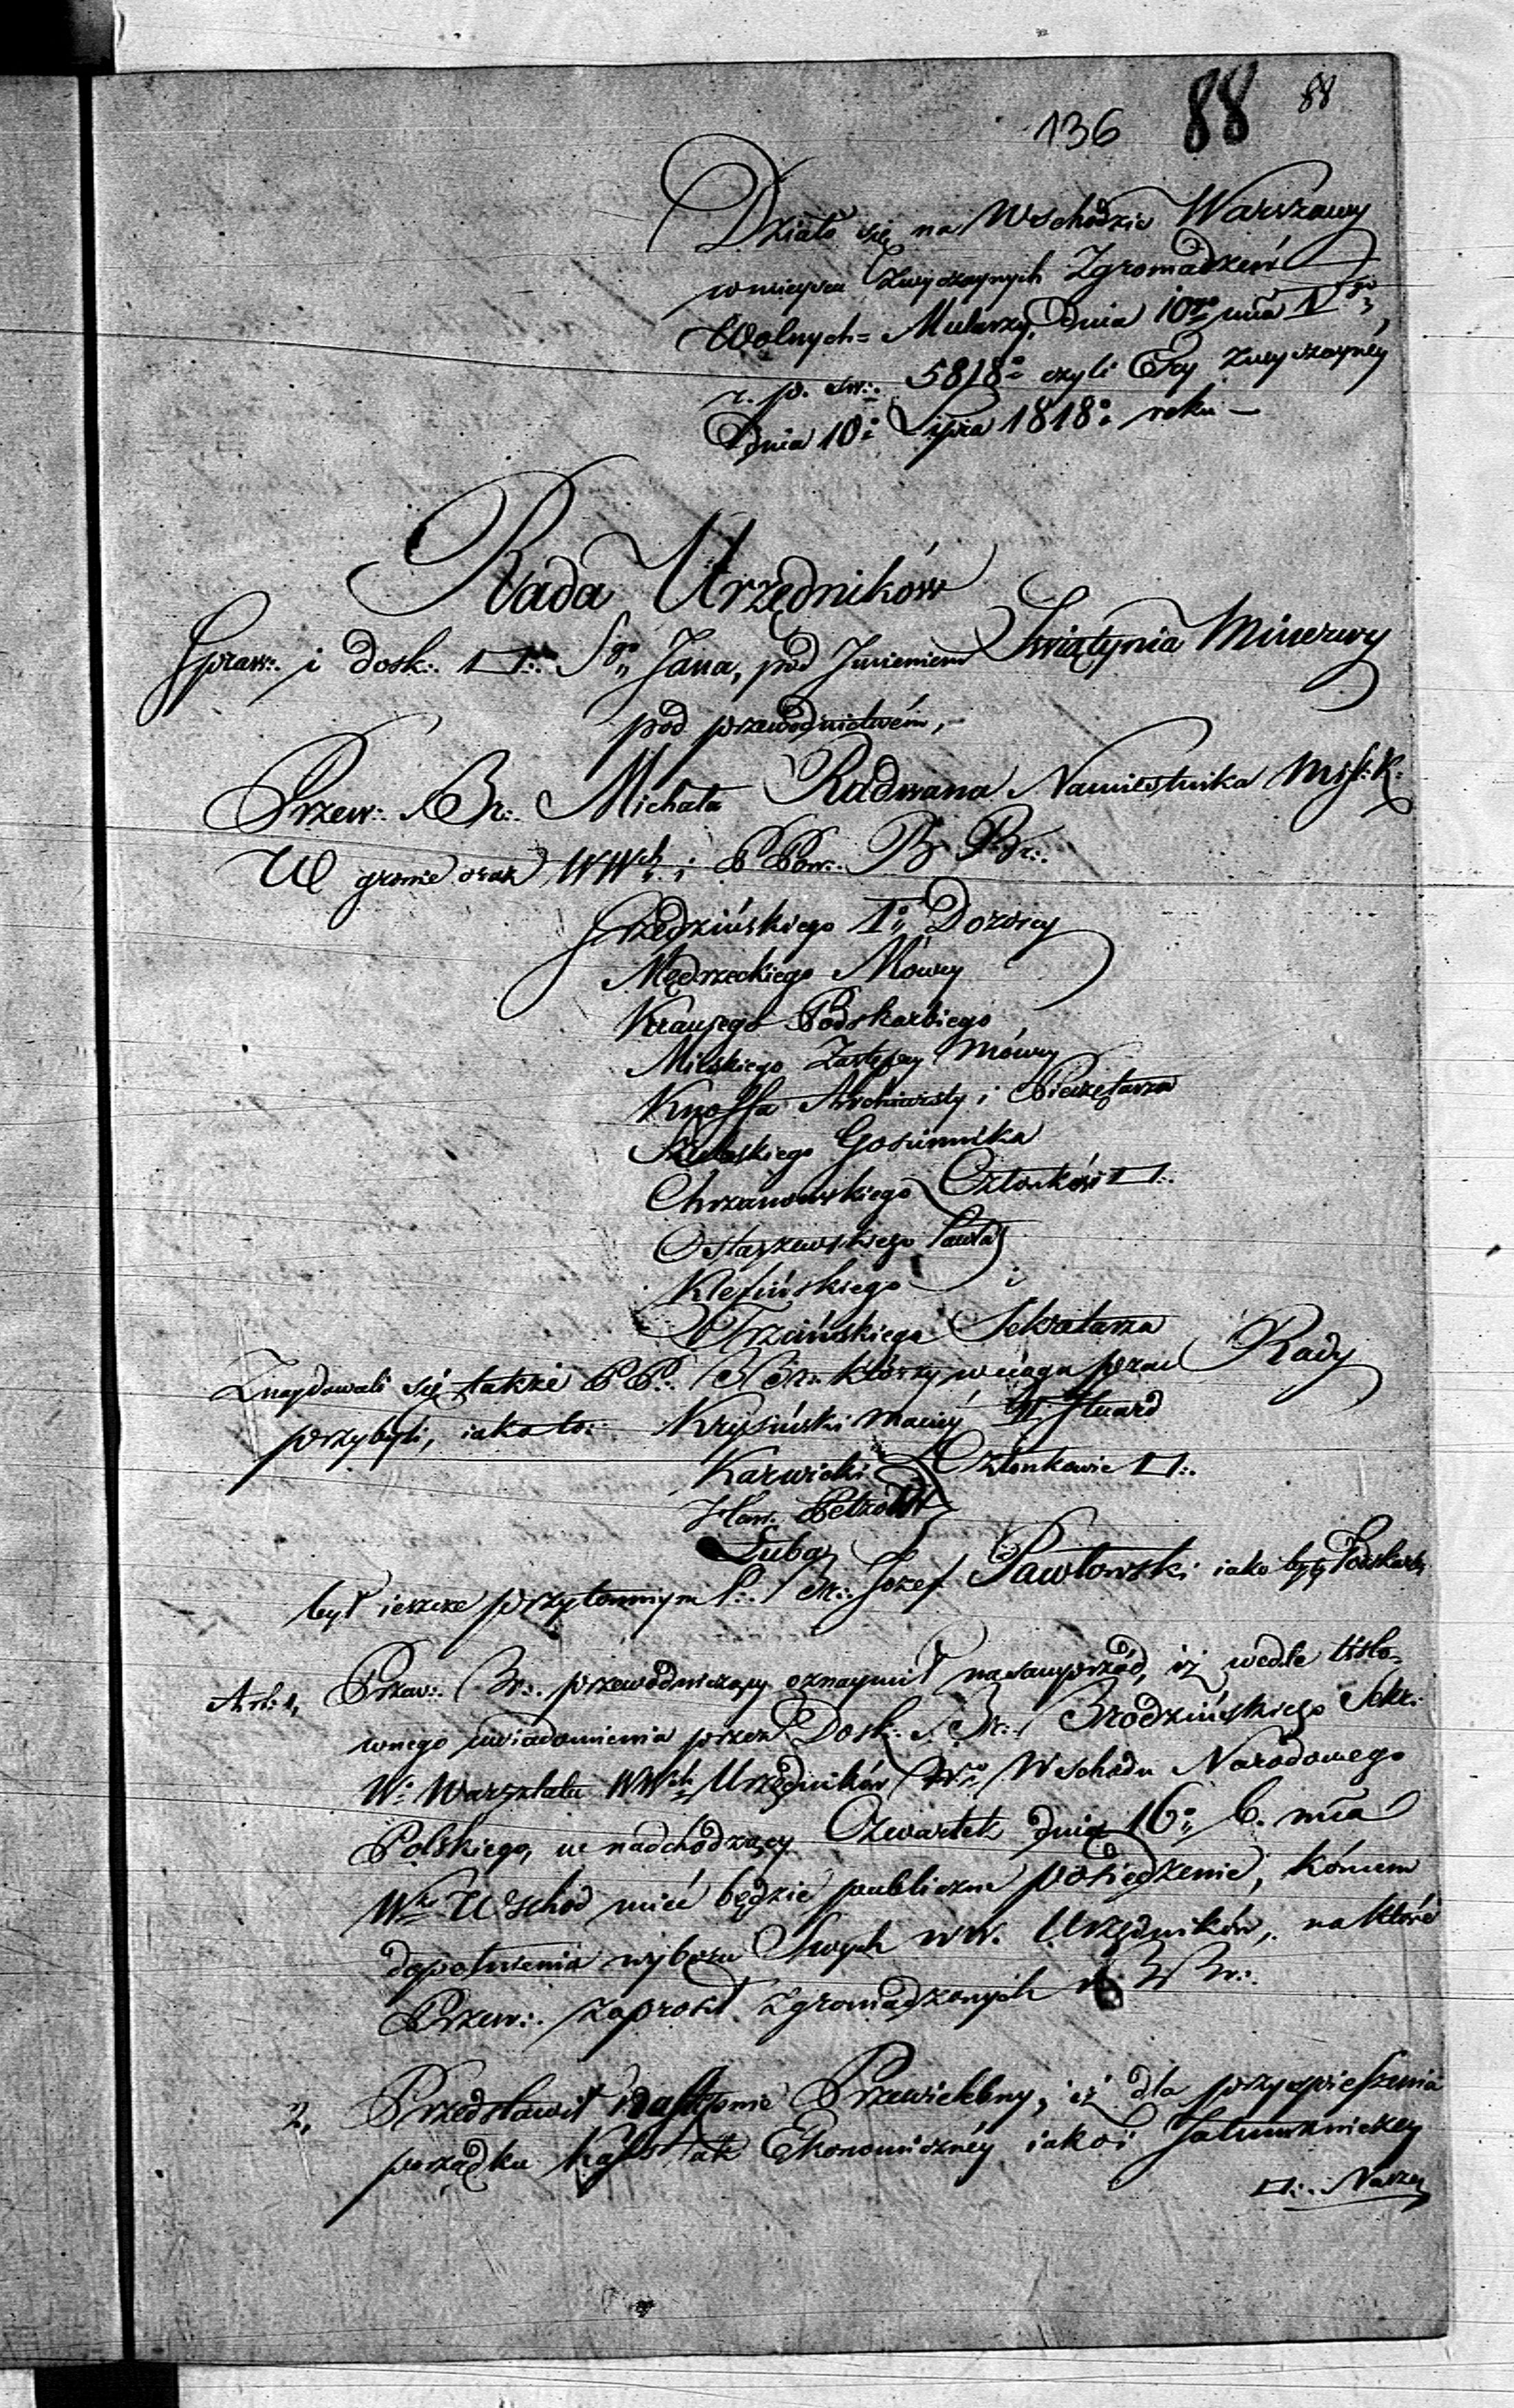 136 88 88
Działo się na Wschodzie Warszawy
w mieyscu Zwyczaynych Zgromadzeń
Wolnych= Mularzy, Dnia 10go mca V go,
r. p. św:. 5818o czyli Ery Zwyczayney
Dnia 10o Lipca 1818o roku —
Rada Urzędników
Spraw:. i dosk:. □:. Sgo Jana, pod Imieniem Świątynia Minerwy
pod przewodnictwem,
Przew:. Br:. Michała Radwana Namiestnika
W gronie oraz WWch i PPow:. BBr:.
1o Dozorcy
Mędrzeckiego Mówcy
Krausego Podskarbiego
Milskiego Zastępcy Mówcy
Knoffa Archiwisty i Pieczętarza
Gościnnika
Chrzanowskiego Członków □:.
Ostaszewskiego Pawła
i
Trzcińskiego Sekretarza
Znaydowali się także PP:. BBr:. którzy w ciągu prac Rady
przybyli, iako to: Krysiński Maciey
Karwicki Członkowie □:.
Petzold
Luba
był ieszcze przytomnym P:. Br:. Jozef Pawłowski iako były Podskarb:
Art: 1, Przew:. Br:. przewodniczący oznaymił nasamprzód, iż wedle
wnego uwiadomienia przez Dosk:. Br:. Brodzińskiego Sekr:.
Wo Warsztatu WWch Urzędników Wgo Wschodu Narodowego
Polskiego, w nadchodzący Czwartek dnia 16o b. mca
Wki Wschód mieć będzie publiczne posiedzenie, końcem
dopełnienia wyboru Swych WW. Urzędników, na które
Przew:. zaprosił zgromadzonych BBr:.
2, Przedstawił następnie Przewielebny, iż dla przyspieszenia
porządku Kass tak Ekonomiczney iako i Jałmużniczey
□:. Naszey